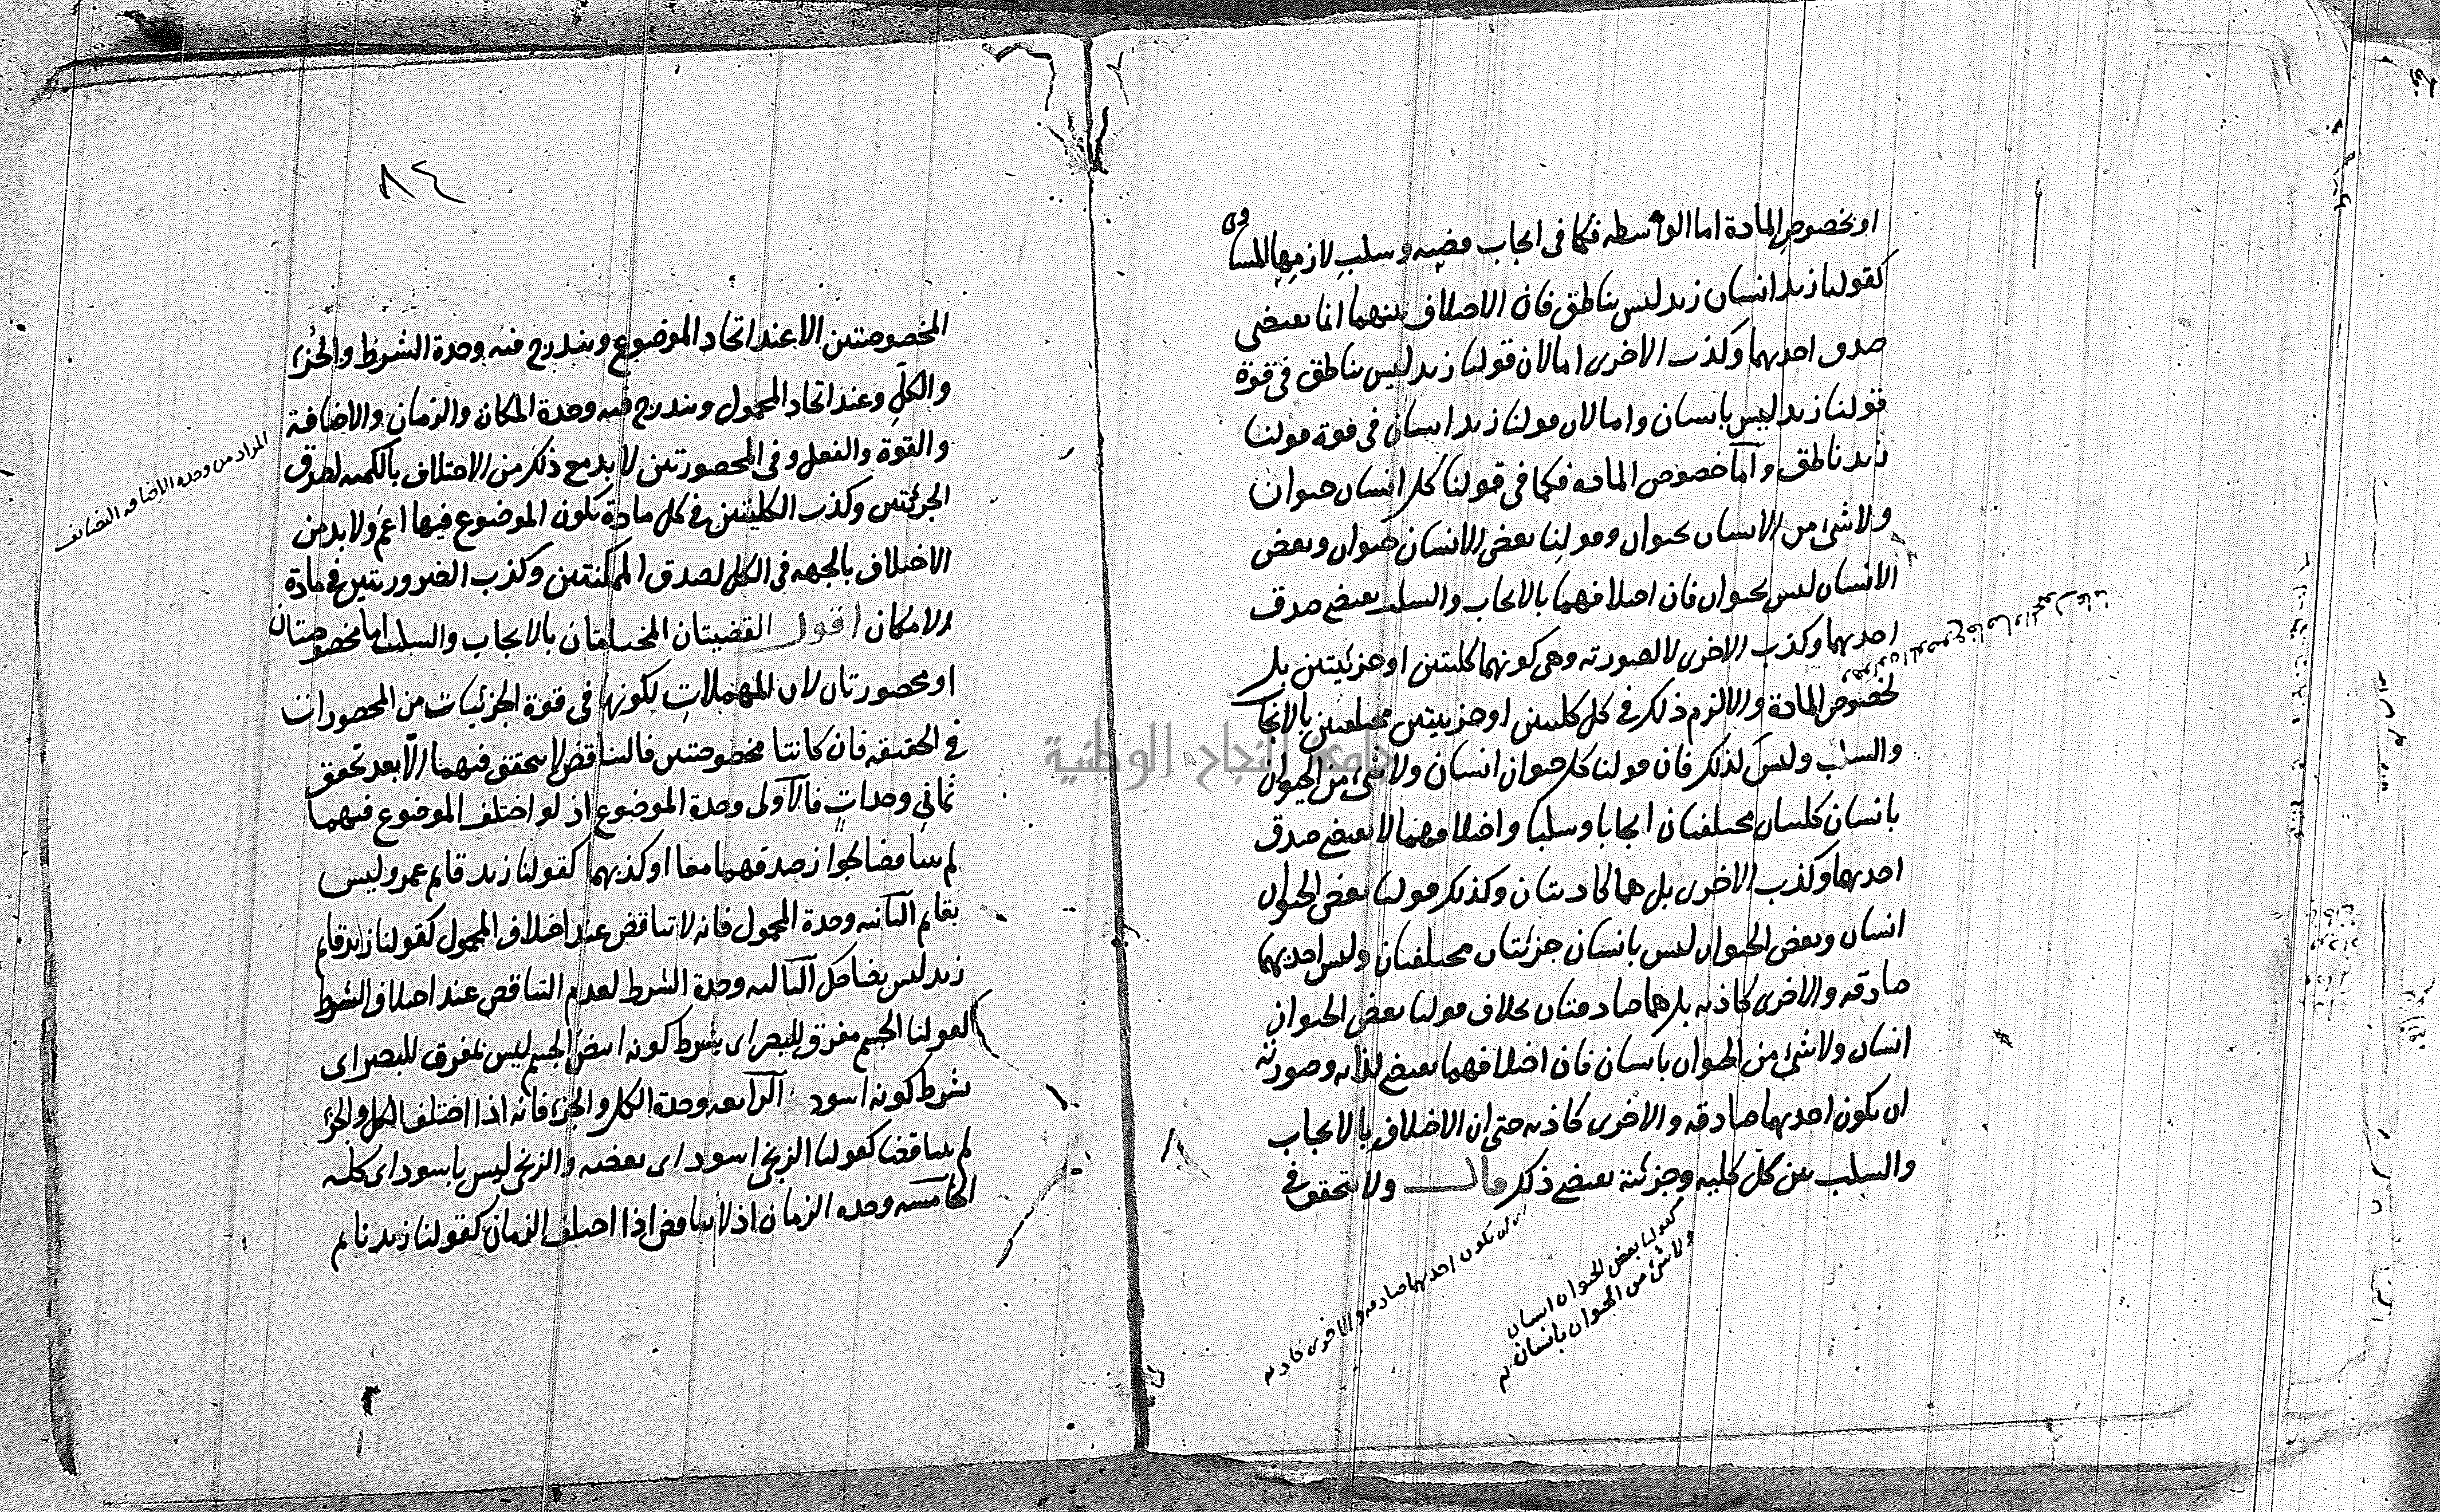 او بخصوص المادة اما الواسطه فكما فى ايجاب قضيه وسلب لازمها المساوى
كقولنا زيد انسان زيد ليس بناطق فان الاختلاف بينهما انما يقتضى
صدق احديهما وكذب الاخرى اما لان قولنا زيد ليس بناطق فى قوة
قولنا زيد ليس بانسان واما لان قولنا زيد انسان فى قوة قولنا
زيد ناطق واما خصوص الماده فكما فى قولنا كل انسان حيوان
ولا شئ من الانسان بحيوان وقولنا بعض الانسان حيوان وبعض
الانسان ليس بحيوان فان اختلافهما بالايجاب والسلب يقتضى صدق
احديهما وكذب الاخرى لا لصورته وهى كونهما كليتين او جزئيتين بل
لخصوص المادة والا لزم ذلك فى كل كليتين او جزئيتين مختلفتين بالايجاب
والسلب وليس كذلك فان قولنا كل حيوان انسان ولا شئ من الحيوان
بانسان كليتان مختلفتان ايجابا وسلبا واختلافهما لا يقتضى صدق
احديهما وكذب الاخرى بل هما كاذبتان وكذلك قولنا بعض الحيوان
انسان وبعض الحيوان ليس بانسان جزئيتان مختلفتان وليس احديهما
صادقه والاخرى كاذبه بل هما صادقتان بخلاف قولنا بعض الحيوان
انسان ولا شئ من الحيوان بانسان فان اختلافهما يقتضى لذاته وصورته
ان يكون احديهما صادقه والاخرى كاذبه حتى ان الاختلاف بالايجاب
والسلب بين كل كليه وجزئية يقتضى ذلك قال ولا يتحقق فى
ان يكون احديهما صادقه والاخرى كاذبه
كقولنا بعض الحيوان انسان
ولا شئ من الحيوان بانسان
٨٤
المخصوصتين الا عند اتحاد الموضوع ويندرج فيه وحدة الشرط والجزء
والكل وعند اتحاد المحمول ويندرج فيه وحدة المكان والزمان والاضافة
والقوة والفعل وفى المحصورتين لا بد مع ذلك من الاختلاف بالكميه لصدق
الجزئيتين وكذب الكليتين فى كل مادة يكون الموضوع فيها اعم ولا بد من
الاختلاف بالجهه فى الكل لصدق الممكنتين وكذب الضروريتين فى مادة
الامكان اقول القضيتان المختلفتان بالايجاب والسلب اما مخصوصتان
او محصورتان لان المهملات لكونها فى قوة الجزئيات من المحصورات
فى الحقيقه فان كانتا مخصوصتين فالتناقض لا يتحقق فيهما الا بعد تحقق
ثمانى وحدات فالاولى وحدة الموضوع اذ لو اختلف الموضوع فيهما
لم يتناقضا لجواز صدقهما معا او كذبهما كقولنا زيد قايم عمرو ليس
بقايم الثانيه وحدة المحمول فانه لا تناقض عند اختلاف المحمول كقولنا زيد قايم
زيد ليس بضاحك الثالثه وحدة الشرط لعدم التناقض عند اختلاف الشرط
كقولنا الجسم مفرق للبصر اى بشرط كونه ابيض الجسم ليس بمفرق للبصر اى
بشرط كونه اسود الرابعه وحدة الكل والجزء فانه اذا اختلف الكل والجزء
لم يتناقضا كقولنا الزنجى اسود اى بعضه والزنجى ليس باسود اى كله
الخامسه وحده الزمان اذ لا تناقض اذا اختلف الزمان كقولنا زيد نايم
المراد من وحدة الاضافه التضايف
جامعة النجاح الوطنية